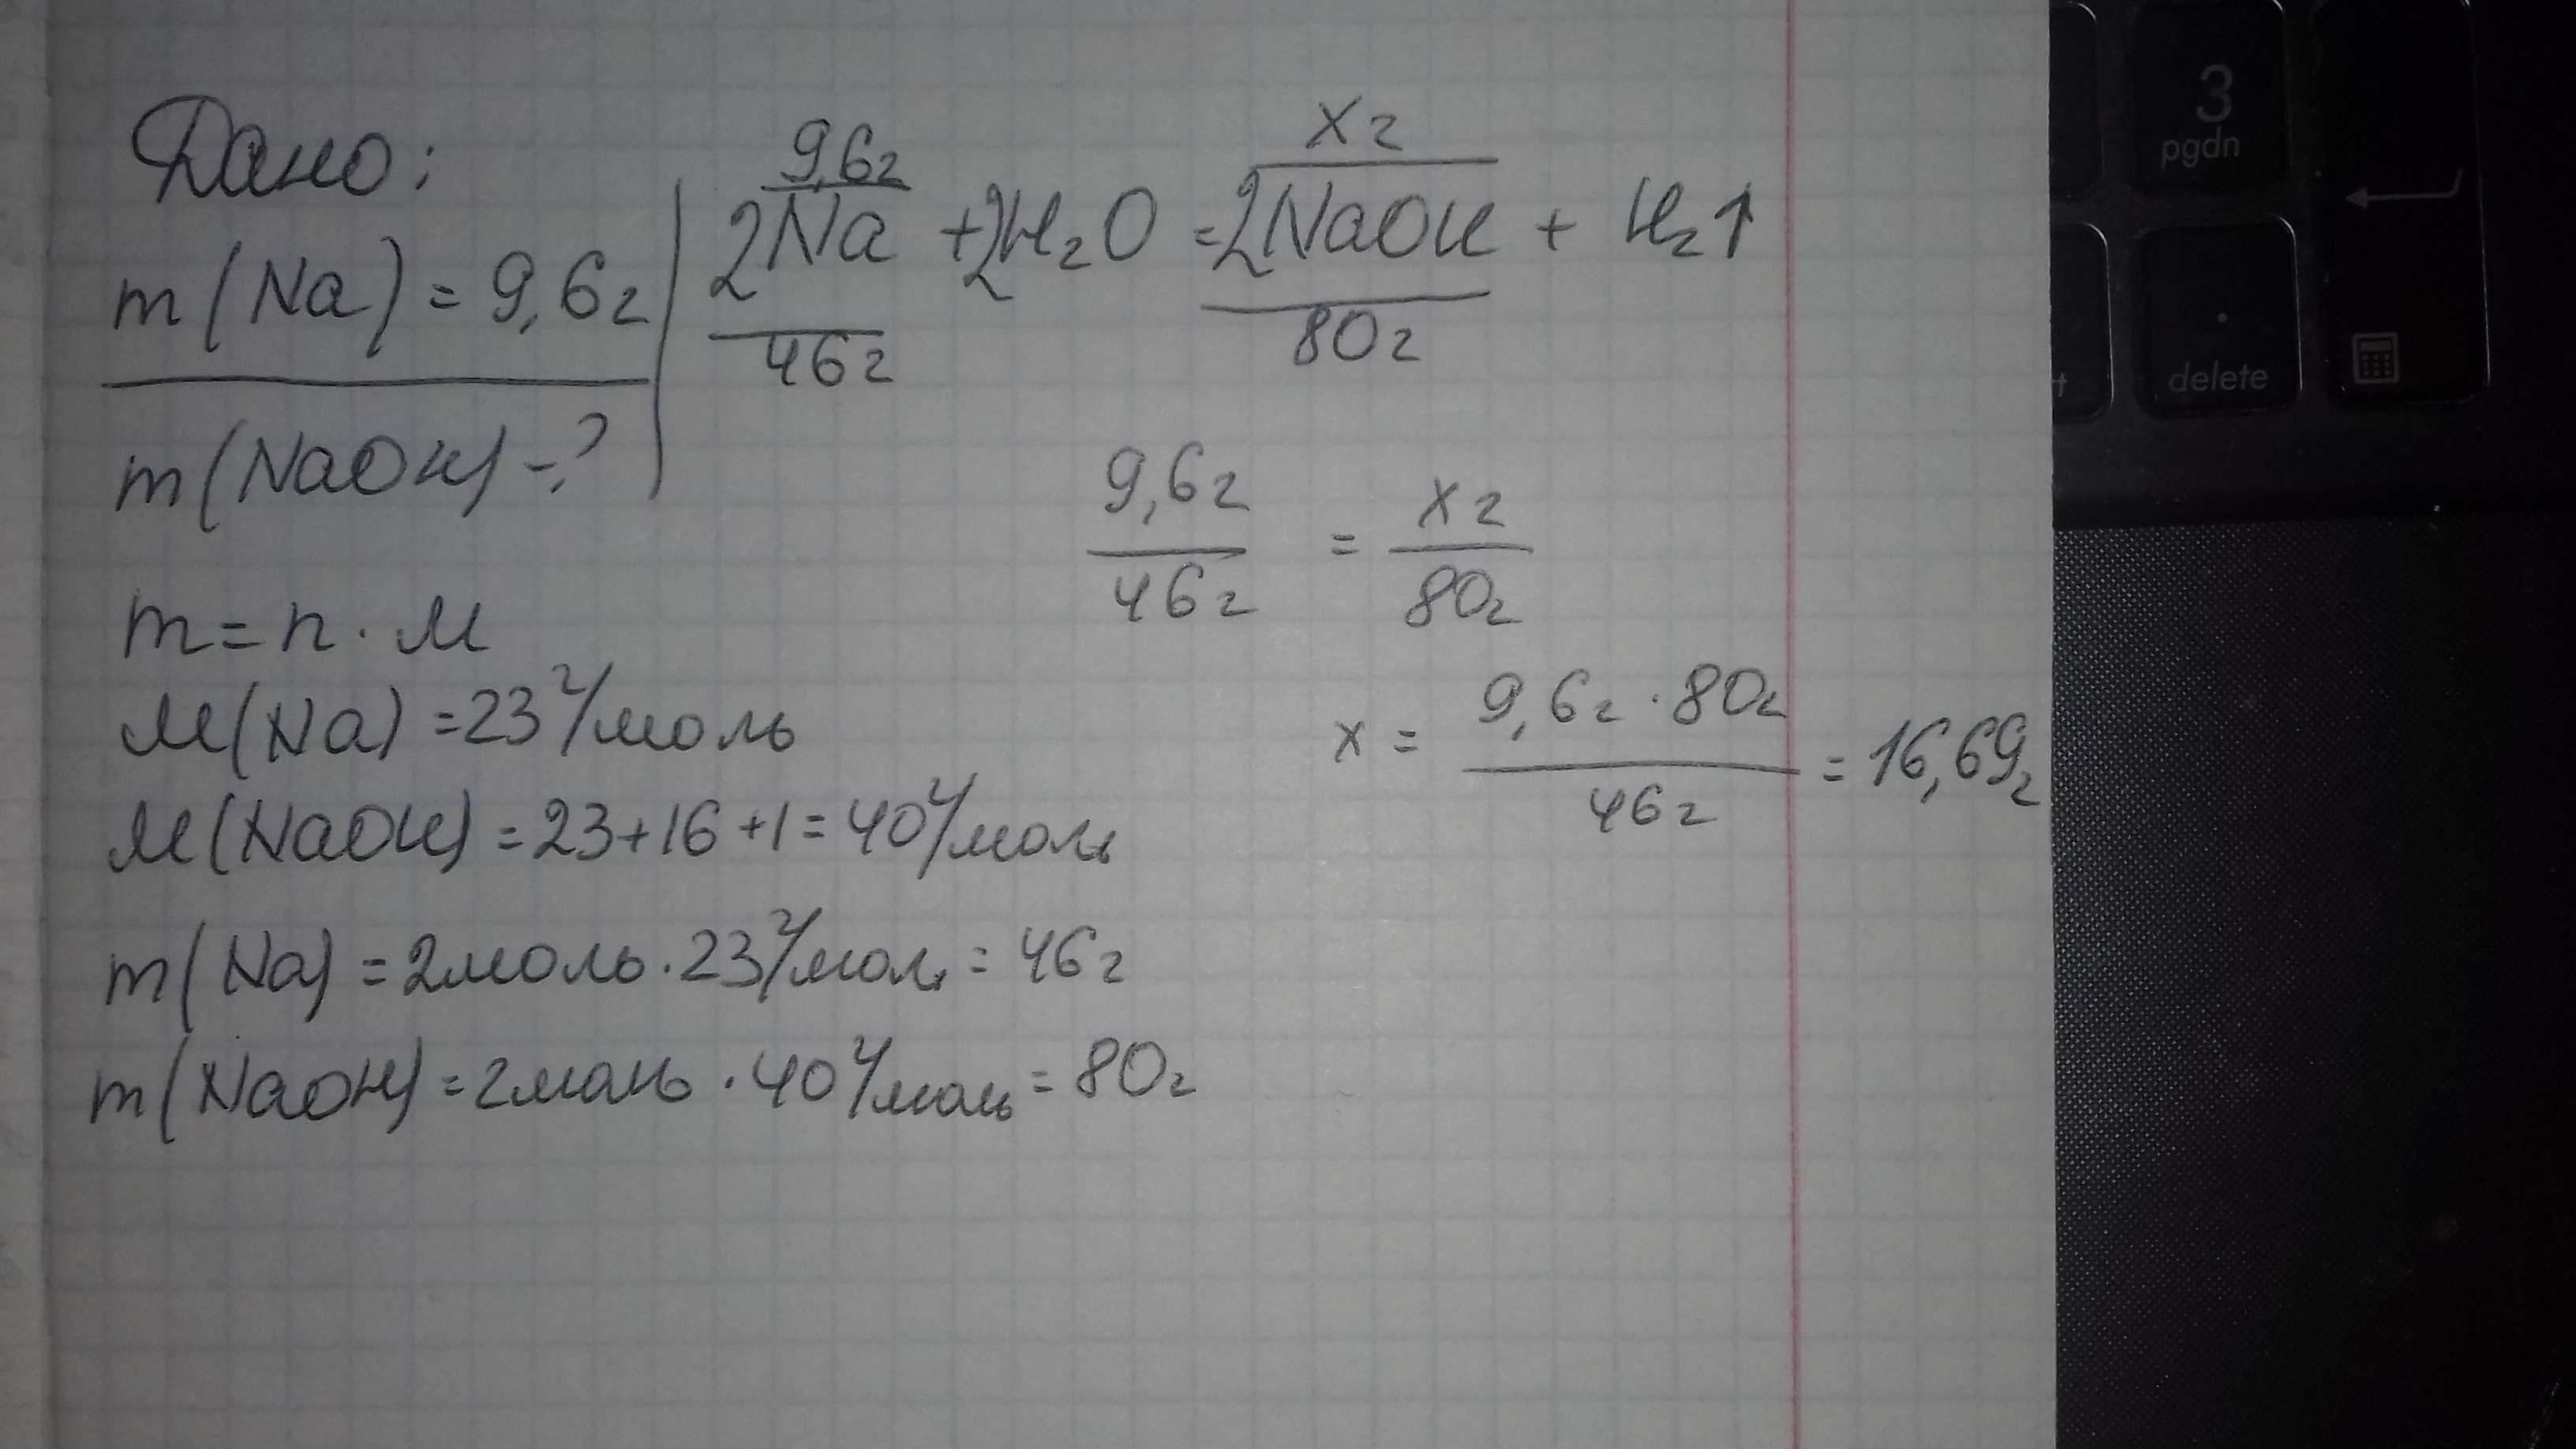 Дано:
m(Na) = 9,6г
m(NaOH) - ?
9,6г    x г
2Na + 2H₂O = 2NaOH + H₂↑
46г    80г
9,6г / 46г = x г / 80г
x = 9,6г · 80г / 46г = 16,69г
m = n · M
M(Na) = 23 г/моль
M(NaOH) = 23+16+1 = 40 г/моль
m(Na) = 2моль · 23 г/моль = 46г
m(NaOH) = 2моль · 40 г/моль = 80г
3
pgdn
.
delete